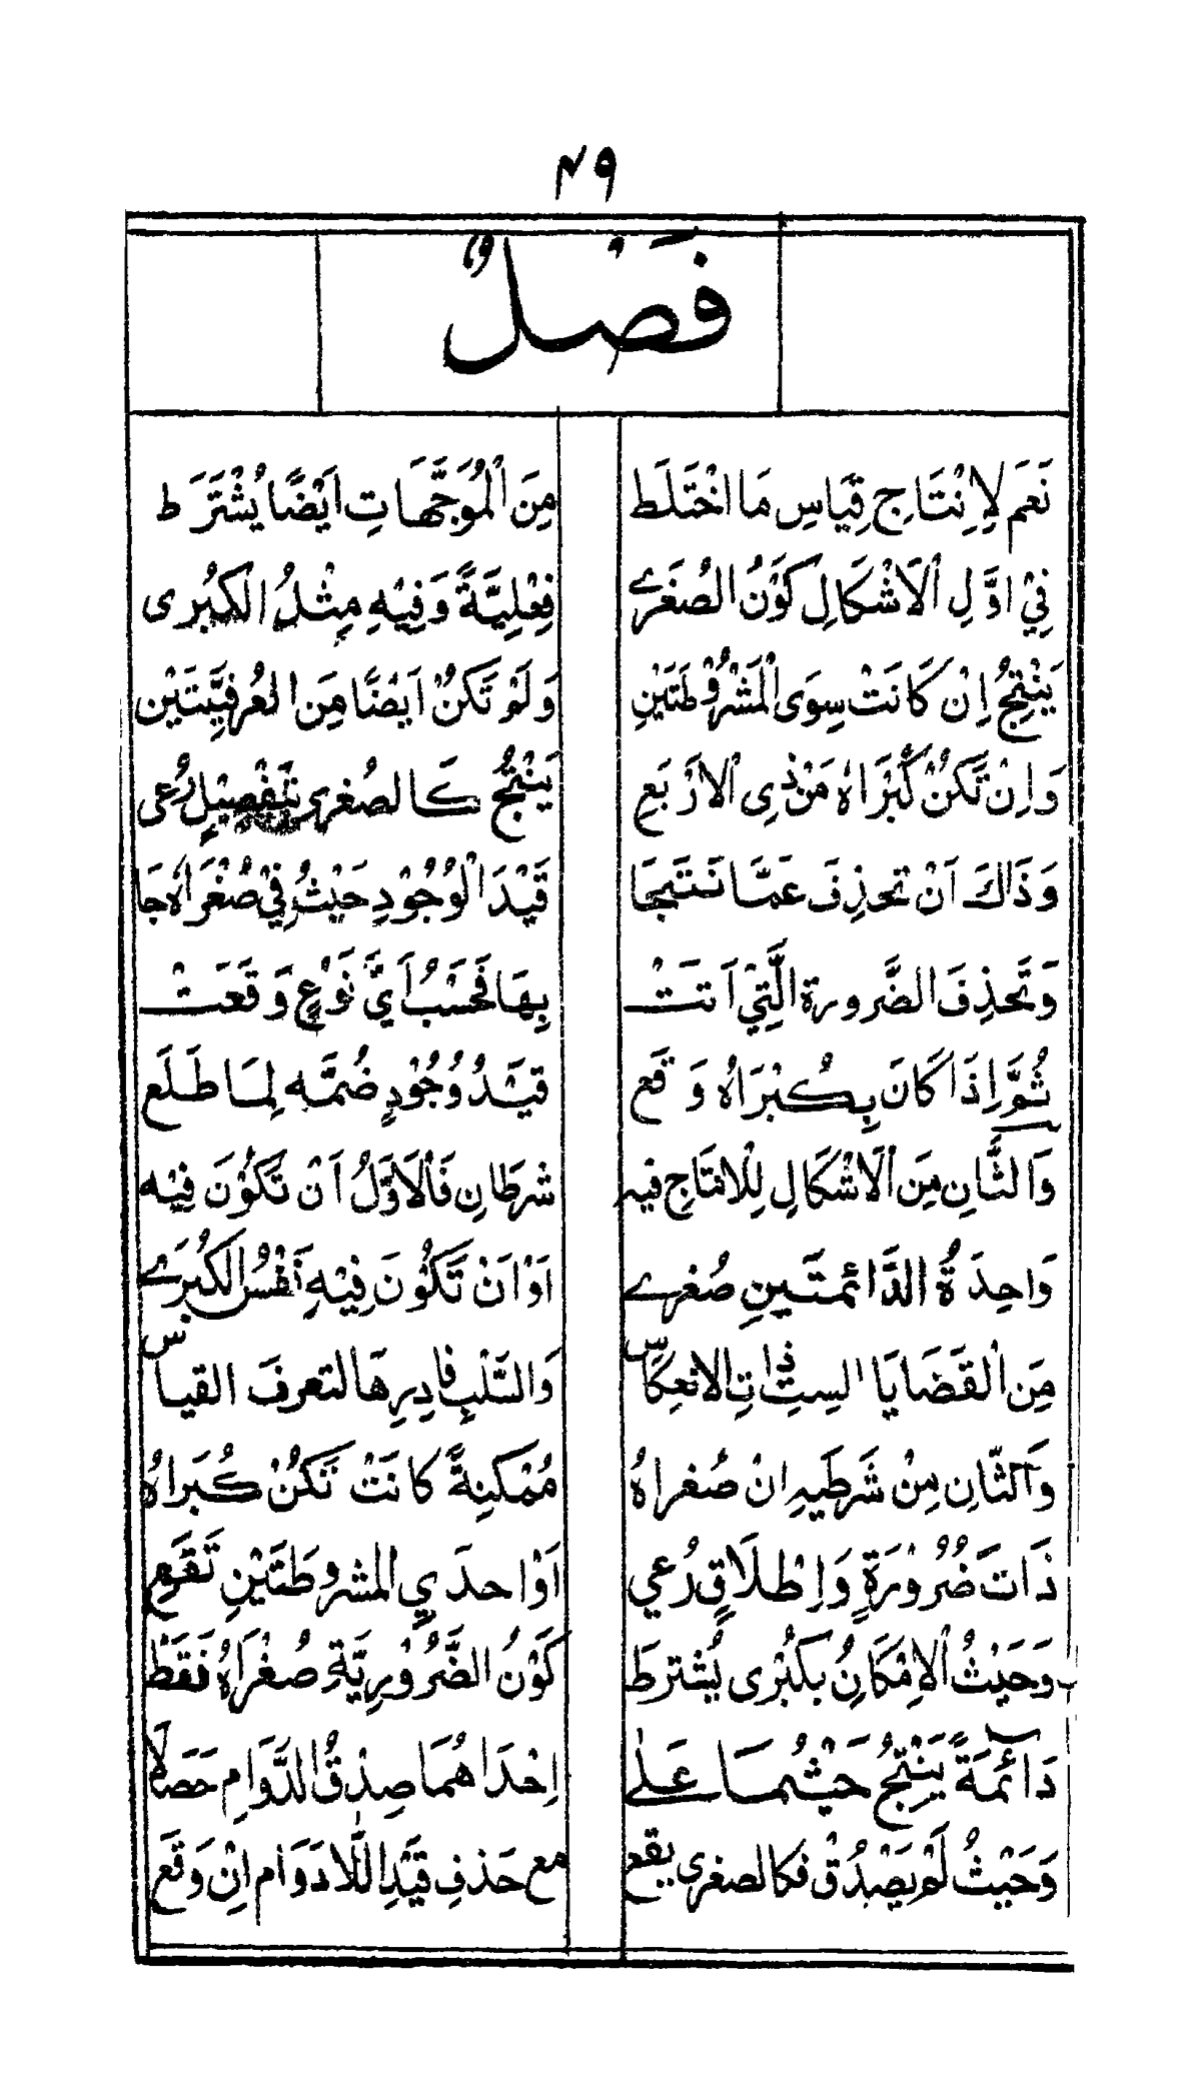 ۴۹
فَصْلٌ
نَعَم لِاِنْتَاجِ قِيَاسِ مَا اخْتَلَط مِنَ الْمُوَجَّهَاتِ اَيْضًا يُشْتَرَط
فِيْ اوَّلِ الْاَشْكَالِ كَوْنُ الصُغْرَے فِعْلِيَّةً وَفِيْهِ مِثْلُ الكُبْرى
يَنْتِجُ اِنْ كَانَتْ سِوَى الْمَشْرُوْطَتَيْنِ وَلَمْ تَكُنْ اَيْضًا مِنَ العُرفِيَّتَيْن
وَاِنْ تَكُنْ كُبْرَاهُ مِنْ ذِى الْارْبَعِ يَنْتِجُ كَالصُغْرى بتَفْصِيْلٍ رُعى
وَذَاكَ اَنْ تحذِفَ عَمَّا نَتَجَا قَيْدَ الْوُجُوْدِ حَيْثُ فِيْ صُغْرَاهُ جَا
وَتَحْذِفَ الضَّرورةَ الَّتِيْ اَتَتْ بِهَا فَحَسْبُ اَيَّ نَوْعٍ وَقَعَتْ
ثُمَّ اِذَا كَانَ بِكُبْرَاهُ وَقَع قَيْدُ وُجُوْدٍ ضُمَّه لِمَا طَلَع
وَالثَّانِ مِنَ الْاَشْكَالِ لِلْانتَاجِ فيهِ شرطانِ فَالْاَوَّلُ اَنْ تَكُوْنَ فِيْه
وَاحِدَةُ الدَّائمتَينِ صُغرے اَوْ اَنْ تَكُوْنَ فِيْهِ نَفْسُ الْكُبْرَے
مِنَ الْقَضَايَا السِتِّ ذاتِ الانعِكاس وَالسَّلْبِ فادِرِهَا لتعرفَ القياس
وَالثّانِ مِنْ شَرطَيهِ انْ صُغراهُ مُمْكِنةً كانَتْ تَكُنْ كُبَراهُ
ذَاتَ ضُرُوْرَةٍ وَاِطْلَاقٍ رُعي اَوْ احدَي الْمشروطَتَيْنِ تَقَعِ
وَحَيْثُ الْاِمْكَانُ بكُبْرى يُشْترط كَوْنُ الضَّرُوْرِيَّةِ صُغْرَاهُ فَقَطْ
دَائمَةً يَنْتِجُ حَيْثُمَا عَلٰے اِحْدَاهُمَا صِدْقُ الدَّوَامِ حَصَلَا
وَحَيْثُ لَمْ يَصْدُقْ فكالصغرى يقع مع حَذفِ قَيْدِ اللَّادَوَام اِنْ وَقَع